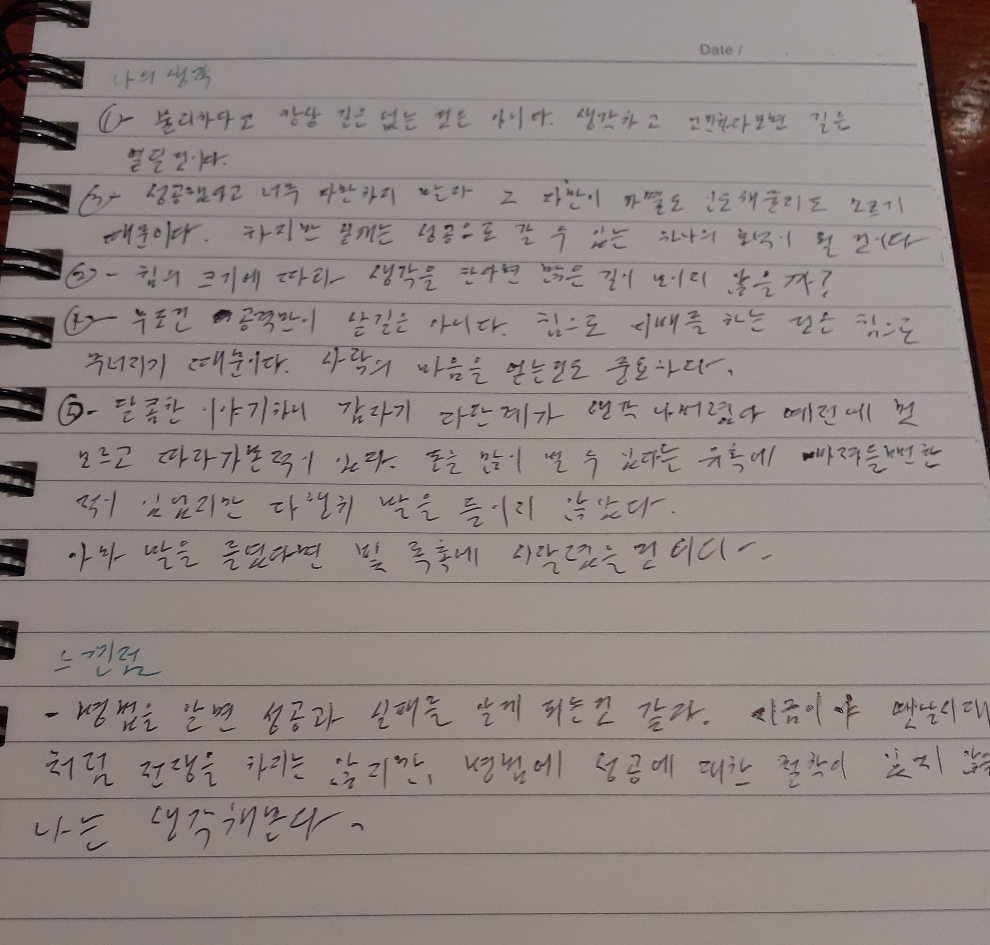 Date /
나의 생각
①- 불리하다고 항상 길은 없는 것은 아니다. 생각하고 고민하다보면 길은
열릴 것이다.
성공했다고 너무 자만하지 말라 그 자만이 파멸로 인도해줄지도 모르기
때문이다. 하지만 실패는 성공으로 갈 수 있는 하나의 희망이 될 것이다
- 힘의 크기에 따라 생각을 한다면 많은 길이 보이지 않을까?
④- 무조건 공격만이 살길은 아니다. 힘으로 지배를 하는 것은 힘으로
무너지기 때문이다. 사람의 마음을 얻는것도 중요하다.
⑤- 달콤한 이야기하니 갑자기 다단계가 생각 나버렸다 예전에 멋
모르고 따라가본적이 있다. 돈을 많이 벌 수 있다는 유혹에 빠져들뻔한
적이 있었지만 다행히 발을 들이지 않았다.
아마 발을 들였다면 빚 독촉에 시달렸을 것이다.
느낀점
- 병법을 알면 성공과 실패를 알게 되는것 같다. 지금이야 옛날시대
처럼 전쟁을 하지는 않지만, 병법에 성공에 대한 철학이 있지 않을
나는 생각해본다.